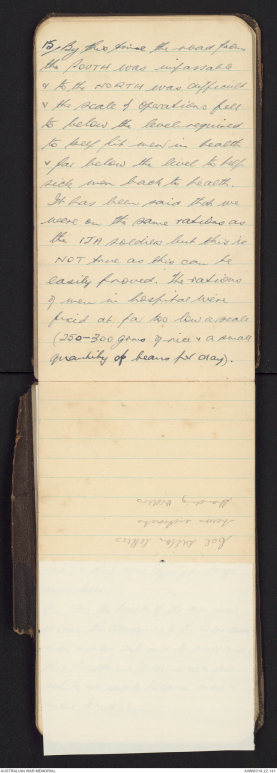 15/ By this time the road from
the SOUTH was impassable
& to the NORTH was difficult
& the scale of operations fell
to below the level required
to keep fit men in health
& far below the level to help
sick men back to health.
It has been said that we
were on the same rations as
the IJA soldiers but this is
NOT true as this can be
easily proved. The rations
of men in hospital were
fixed at far too low a scale
(250-300 grms of rice & a small
quantity of beans per day).
letters
AUSTRALIAN WAR MEMORIAL